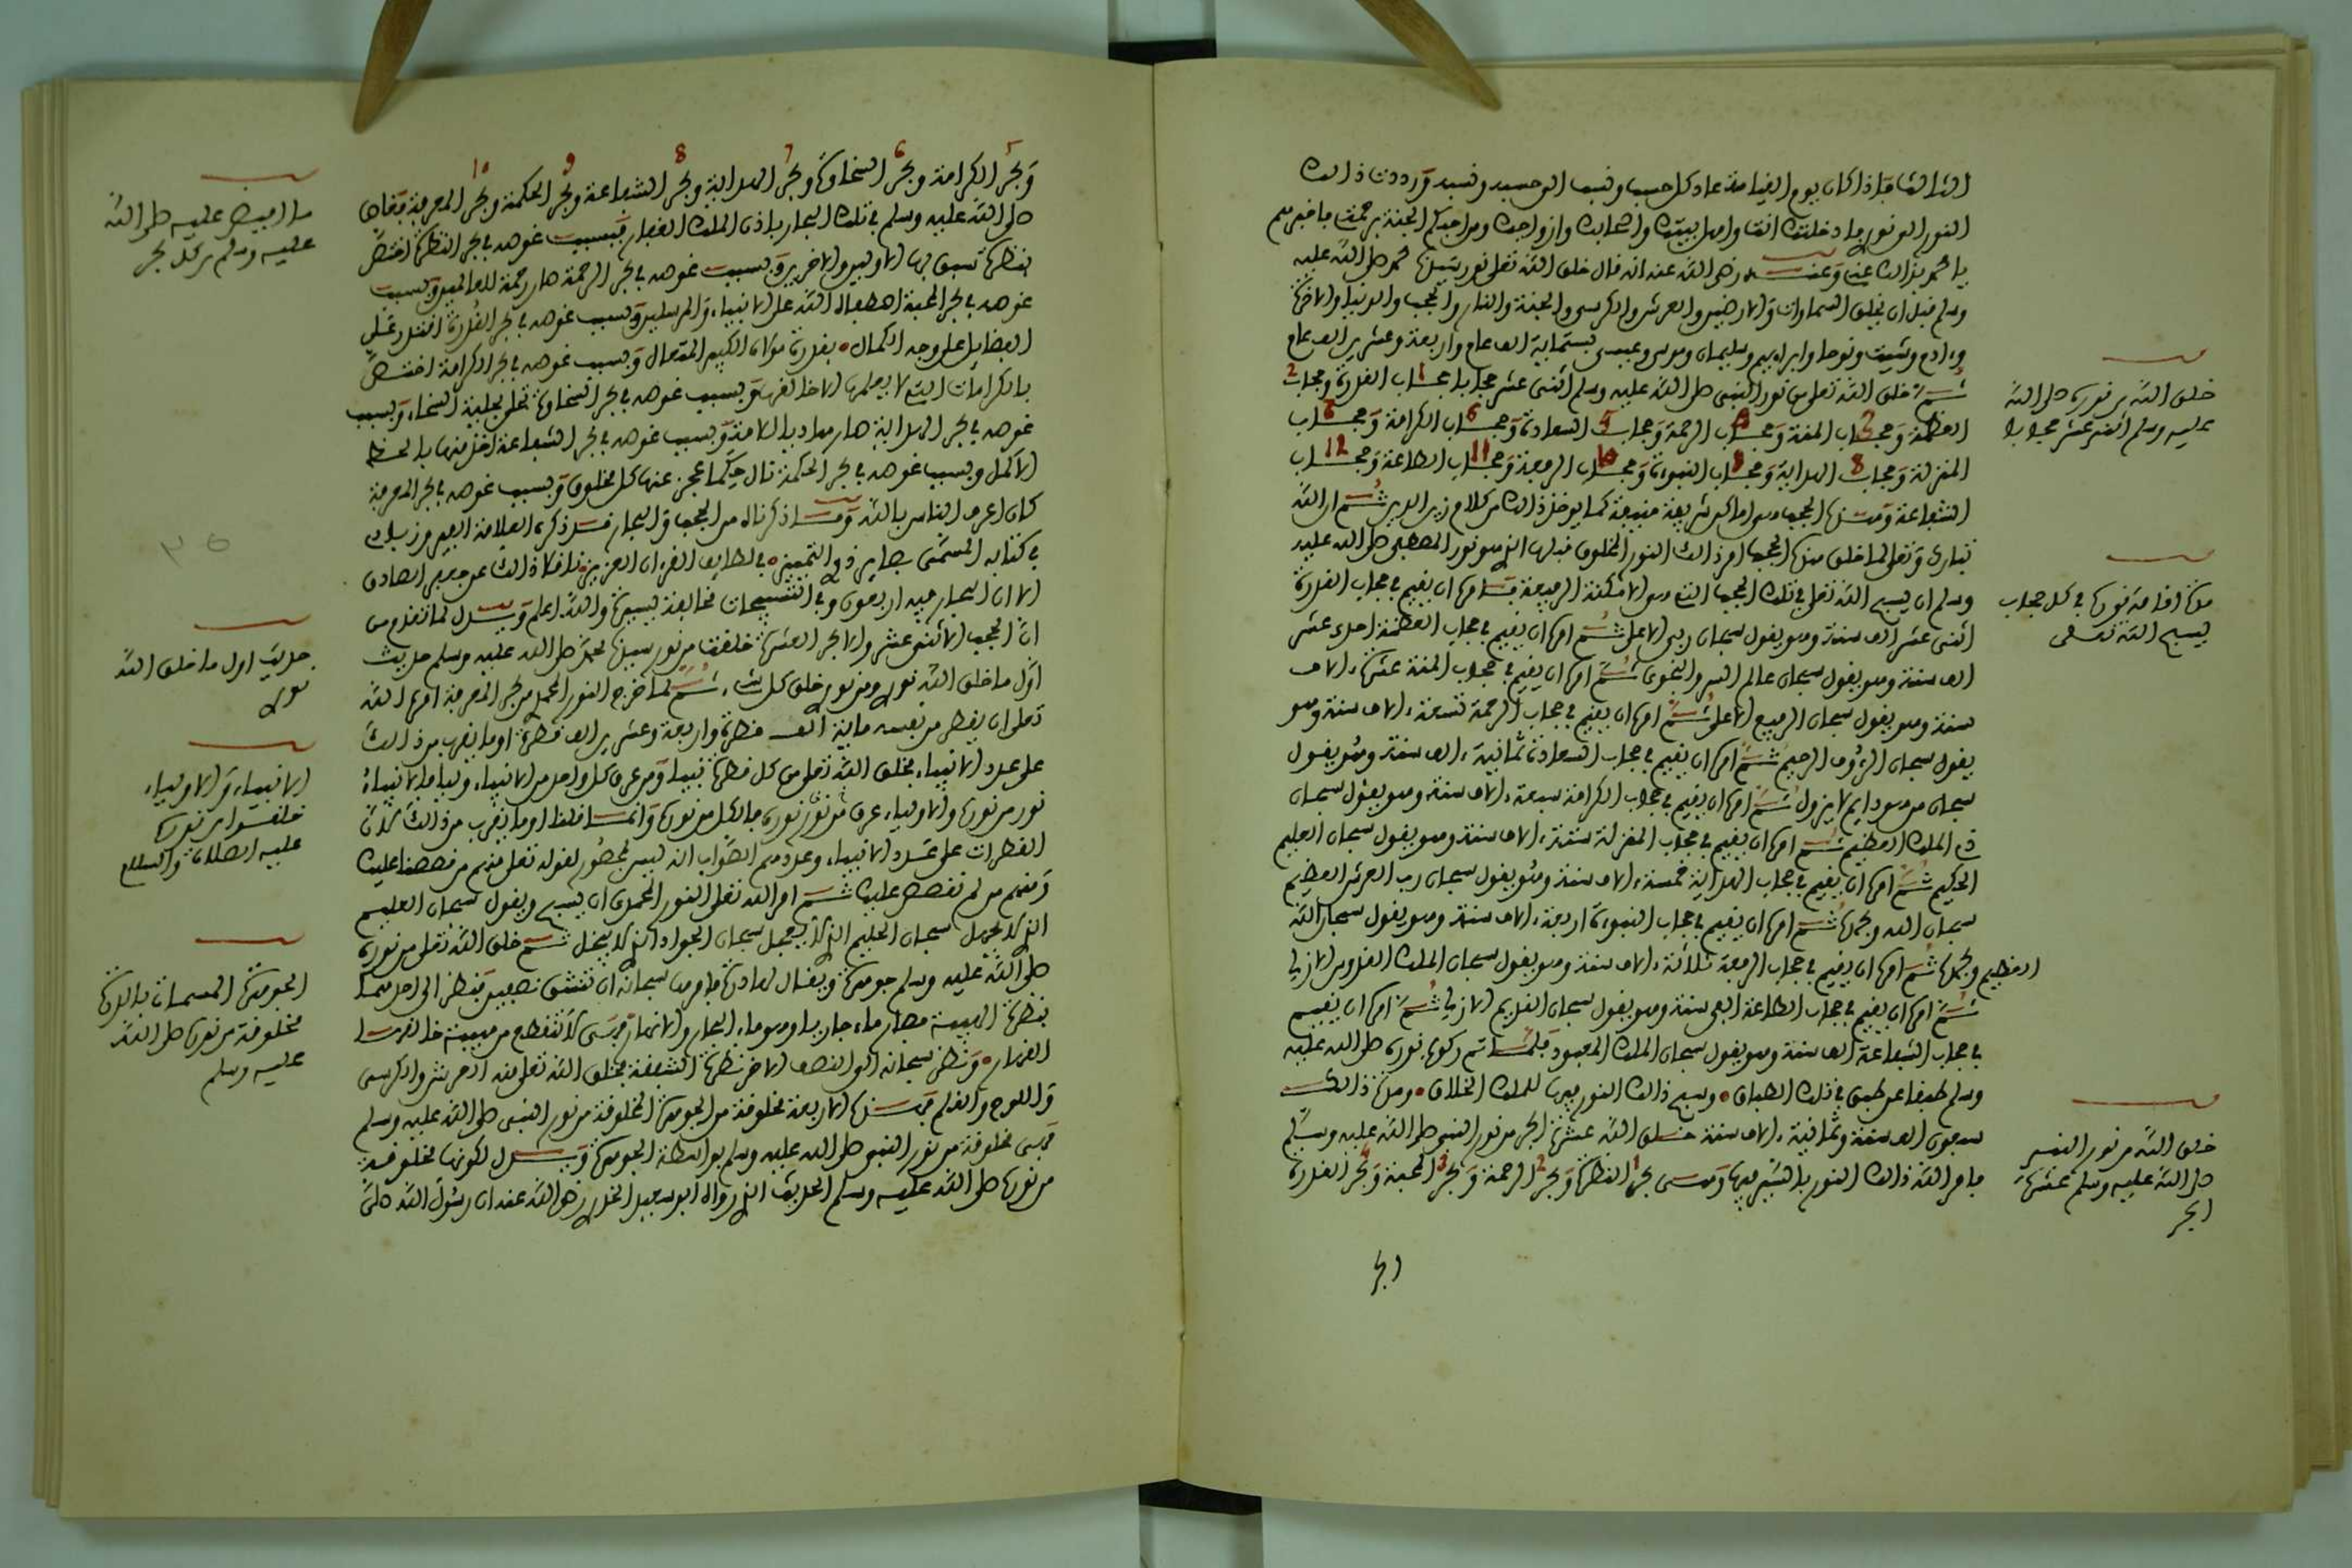 النور الو نوره وادخلتك انت واهل بيتك واصحابك وازواجك ومن احبكم الجنة برحمتي فاخبرهم
يا محمد بذالك عني وعنه رضي الله عنه انه قال خلق الله تعلى نور سيدنا محمد صلى الله عليه
وسلم قبل ان يخلق السماوات والارضين والعرش والكرسي والجنة والنار والحجب والدنيا والاخرة
وءادم وشيث ونوحا وابراهيم وسليمان وموسى وعيسى بستماية الف عام واربعة وعشرين الف عام
ثم خلق الله تعلى من نور النبي صلى الله عليه وسلم اثنى عشر حجابا حجاب القدرة وحجاب
العظمة وحجاب المنة وحجاب الرحمة وحجاب السعادة وحجاب الكرامة وحجاب
المنزلة وحجاب الهداية وحجاب النبوءة وحجاب الرفعة وحجاب الطاعة وحجاب
الشفاعة
وسلم ان يسبح الله تعلى في تلك الحجب
اثنى عشر الف سنة وهو يقول سبحان ربي الاعلى ثم امره ان يقيم في حجاب العظمة احدى عشر
الف سنة وهو يقول سبحان عالم السر والنجوى ثم امره ان يقيم في حجاب المنة عشرة ءالاف
سنة وهو يقول سبحان الرفيع الاعلى ثم امره ان يقيم في حجاب الرحمة تسعة ءالاف سنة وهو
يقول سبحان الرؤف الرحيم ثم امره ان يقيم في حجاب السعادة ثمانية ءالاف سنة وهو يقول
سبحان من هو دايم لا يزول ثم امره ان يقيم في حجاب الكرامة سبعة ءالاف سنة وهو يقول سبحان
ذي الملك العظيم ثم امره ان يقيم في حجاب المنزلة ستة ءالاف سنة وهو يقول سبحان العليم
الحكيم ثم امره ان يقيم في حجاب الهداية خمسة ءالاف سنة وهو يقول سبحان رب العرش العظيم
سبحان الله وبحمده ثم امره ان يقيم في حجاب النبوءة اربعة ءالاف سنة وهو يقول سبحان الله
العظيم وبحمده ثم امره ان يقيم في حجاب الرفعة ثلاثة ءالاف سنة وهو يقول سبحان الملك القدوس الازلي
ثم امره ان يقيم في حجاب الطاعة الفي سنة وهو يقول سبحان القديم الازلي ثم امره ان يقيم
في حجاب الشفاعة الف سنة وهو يقول سبحان الملك المعبود فلما تم ركوع نوره صلى الله عليه
وسلم طبقا عن طبق في تلك الطباق وسبح ذالك النور فيها للملك الخلاق ومدة ذالك
سبعون الف سنة وثمانية ءالاف سنة خلق الله عشرة ابحر من نور النبي صلى الله عليه وسلم
فامر الله ذالك النور بالسير فيها وهي بحر النظرة وبحر الرحمة وبحر المحبة وبحر القدرة
خلق الله من نوره صلى الله
عليه وسلم اثنى عشر حجابا
مدة اقامة نوره في كل حجاب
يسبح الله تعلى
خلق الله من نور النبي
صلى الله عليه وسلم عشرة
ابحر
وبحر الكرامة وبحر السخاوة وبحر الهداية وبحر الشفاعة وبحر الحكمة وبحر المعرفة فغاص
صلى الله عليه وسلم في تلك البحار باذن الملك الغفار فبسبب غوصه في بحر النظرة اختص
بنظرة سبق بها الاولين والاخرين وبسبب غوصه في بحر الرحمة صار رحمة للعالمين وبسبب
غوصه في بحر المحبة اصطفاه الله على الانبياء والمرسلين وبسبب غوصه في بحر القدرة اقتدر على
الفضايل على وجه الكمال بقدرة مولاه الكبير المتعال وبسبب غوصه في بحر الكرامة اختص
بالكرامات التي لا يعلمها الا خالقها وبسبب غوصه في بحر السخاوة تحلى بحلية السخاء وبسبب
غوصه في بحر الهداية صار هاديا للامة وبسبب غوصه في بحر الشفاعة اخذ منها بالحظ
الاكمل وبسبب غوصه في بحر الحكمة نال حكما عجز عنها كل مخلوق وبسبب غوصه في بحر المعرفة
كان اعرف الناس بالله وما ذكرناه من الحجب والبحار قد ذكره العلامة
في كتابه المسمى بصاير ذوي التمييز في لطايف القرءان العزيز ناقلا ذالك عن جعفر الصادق
الا ان البحار فيه اربعون وفي التسبيحات مخالفة يسيرة والله اعلم ويدل لما تقدم من
ان الحجب الاثنى عشر والابحر العشرة خلقت من نور سيدنا محمد صلى الله عليه وسلم حديث
اول ما خلق الله نوري ومن نوري خلق كل شيء ثم لما خرج النور المحمدي من بحر المعرفة امره الله
تعلى ان يقطر من نفسه ماية الف قطرة واربعة وعشرين الف قطرة او ما يقرب من ذالك
على عدد الانبياء فخلق الله تعلى من كل قطرة نبيا ومن عرق كل واحد من الانبياء وليا فالانبياء
نور من نوره والاولياء عرق من نور نوره فالكل من نوره وانما قلنا او ما يقرب من ذالك لان
القطرات على عدد الانبياء وعددهم الصواب انه ليس بمحصور لقوله تعلى منهم من قصصنا عليك
ومنهم من لم نقصص عليك ثم امر الله تعلى النور المحمدي ان يسبح ويقول سبحان العليم
الذي لا يجهل سبحان الحليم الذي لا يعجل سبحان الجواد الذي لا يبخل ثم خلق الله تعلى من نوره
صلى الله عليه وسلم جوهرة ويقال لها درة فامرها سبحانه ان تنشق نصفين فنظر الى احدهما
بنظرة الهيبة فصار ماء جاريا وهو ماء البحار والانهار فهي لا تنقطع من هيبة خالقها
القهار ونظر سبحانه الى النصف الاخر نظرة الشفقة فخلق الله تعلى منه العرش والكرسي
واللوح والقلم فهذه الاربعة مخلوقة من الجوهرة المخلوقة من نور النبي صلى الله عليه وسلم
فهي مخلوقة من نور النبي صلى الله عليه وسلم بواسطة الجوهرة ويدل لكونها مخلوقة
من نوره صلى الله عليه وسلم الحديث الذي رواه ابو سعيد الخدري رضي الله عنه ان رسول الله صلى
ما افيض عليه صلى الله
عليه وسلم من كل بحر
حديث اول ما خلق الله
نوري
الانبياء والاولياء
خلقوا من نوره
عليه الصلاة والسلام
الجوهرة المسماة بالدرة
مخلوقة من نوره صلى الله
عليه وسلم